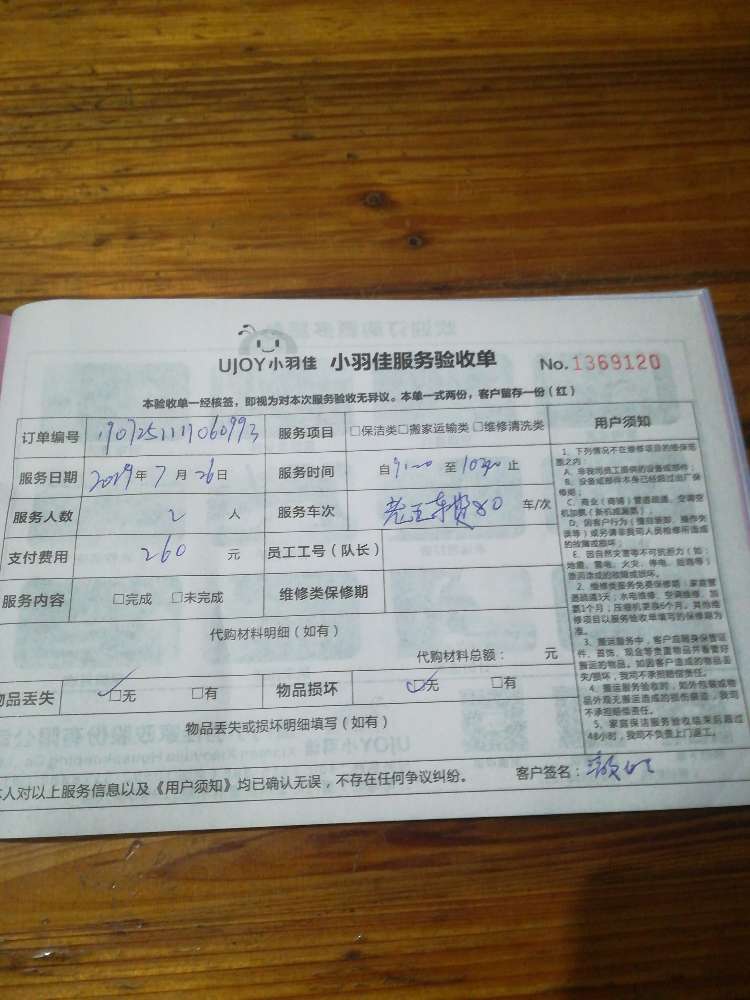 UJOY小羽佳 小羽佳服务验收单 No.1369120
本验收单一经核签，即视为对本次服务验收无异议。本单一式两份，客户留存一份（红）
订单编号 190725111060993 服务项目 □保洁类□搬家运输类□维修清洗类
服务日期 2019年7月26日 服务时间 自 至 止
服务人数 2 人 服务车次 80 车/次
支付费用 260 元 员工工号（队长）
服务内容 □完成 □未完成 维修类保修期
代购材料明细（如有）
代购材料总额： 元
物品丢失 ✓□无 □有 物品损坏 ✓□无 □有
物品丢失或损坏明细填写（如有）
本人对以上服务信息以及《用户须知》均已确认无误，不存在任何争议纠纷。 客户签名：
用户须知
1、下列情况不在维修项目的维保范
围之内：
A、非我司员工提供的设备或部件；
B、设备或部件本身已经超过出厂保
修期；
C、商业（商铺）管道疏通、空调空
机加氨（新机或漏氟）；
D、因客户行为（擅自装卸、操作失
误等）或另请非我司人员检修所造成
的故障或损坏；
E、因自然灾害等不可抗拒力（如：
地震、雷电、火灾、停电、盗窃等）
原因造成的故障或损坏。
2、维修类服务免费保修期：家庭管
道疏通3天；水电维修、空调维修、加
氟1个月；压缩机更换6个月。其他维
修项目以服务验收单填写的保修期为
准。
3、搬运服务中，客户应随身保管证
件、首饰、现金等贵重物品并看管好
搬运的物品。如因客户造成的物品丢
失/损坏，我司不承担赔偿责任。
4、搬运服务验收时，如外包装或物
品外观无搬运造成的损伤痕迹，我司
不承担赔偿责任。
5、家庭保洁服务验收结束后超过
48小时，我司不负责上门返工。